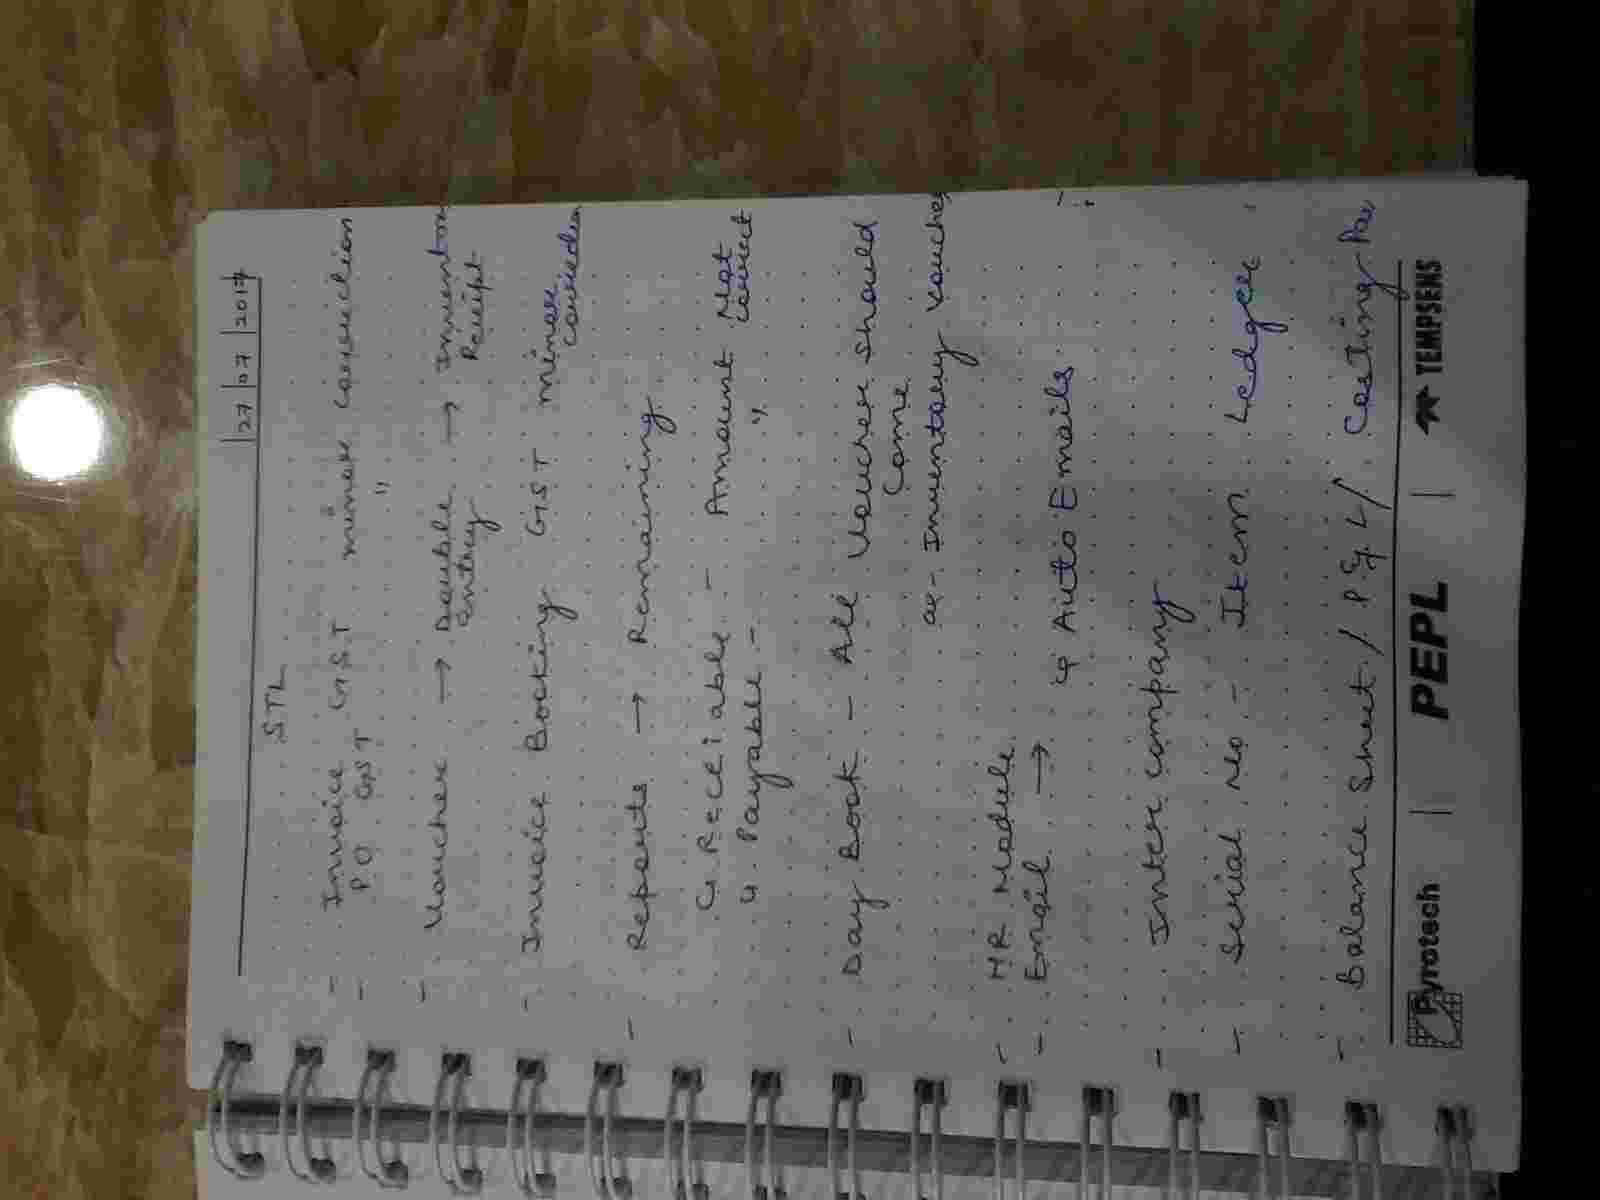 27 | 07 | 2017
STL
- Invoice GST minor correction
- PO GST "
- Voucher → Double Entry → Inventory Receipt
- Invoice Booking GST minor correction
- Reports → Remaining
↳ Receiable - Amount Not Correct
↳ Payable - "
- Day Book - All Voucher should Come
or - Inventory Voucher
- HR Module
- Email → ↳ Auto Emails
- Inter company
- Serial No - Item Ledger
- Balance Sheet / P & L / Costing
Pyrotech | PEPL | TEMPSENS